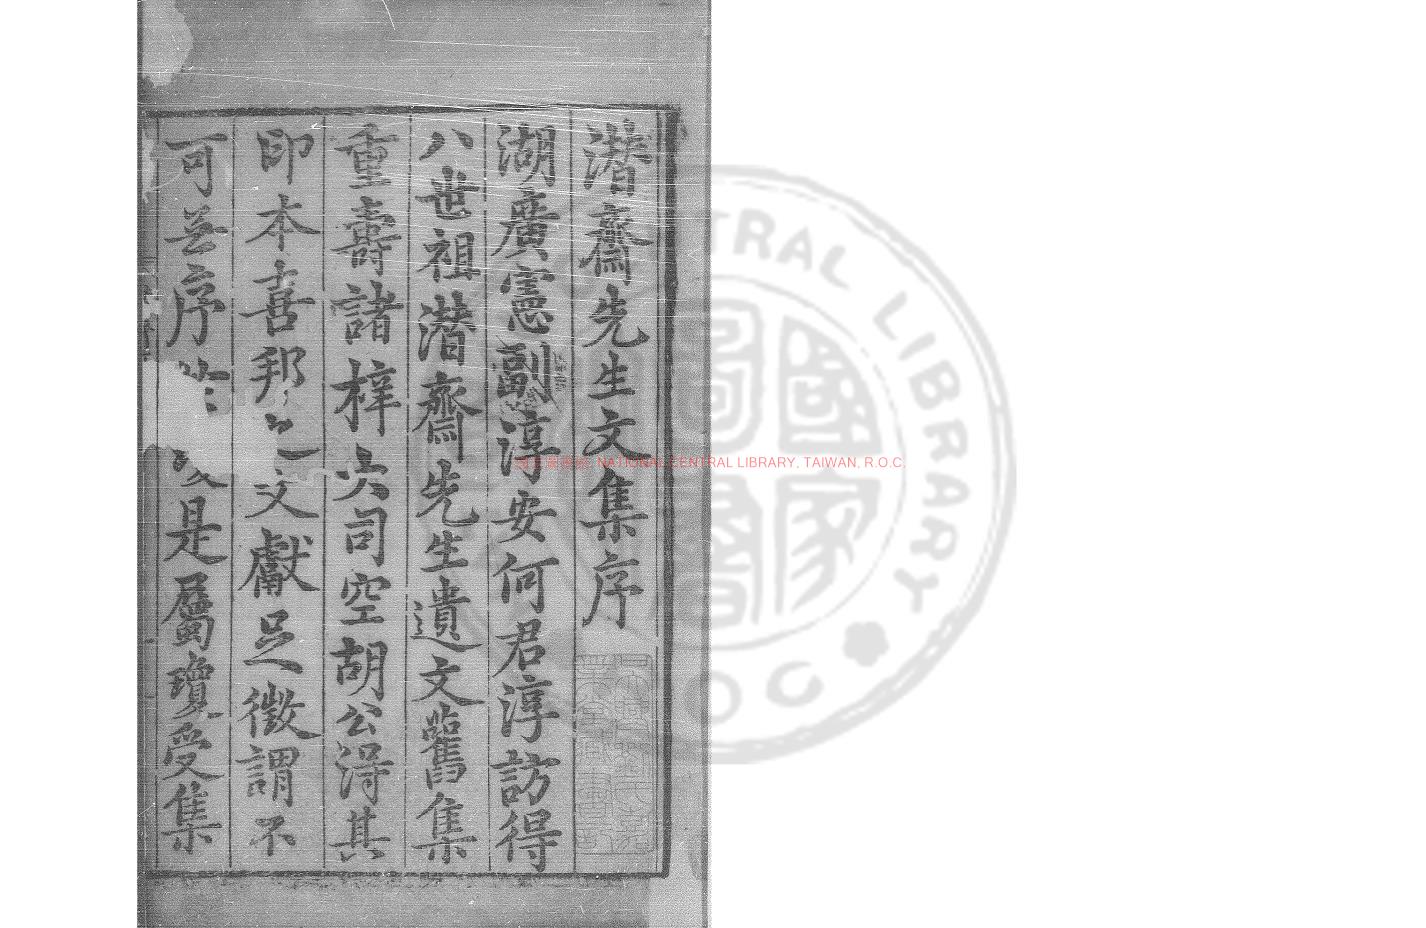 潛齋先生文集序
湖廣憲副淳安何君淳訪得
八世祖潛齋先生遺文舊集
重壽諸梓大司空胡公淂其
印本喜邦 之文獻足徵謂不
可無序 是屬瓊受集
NATIONAL CENTRAL LIBRARY, TAIWAN, R.O.C.
TRAL LIBRARY